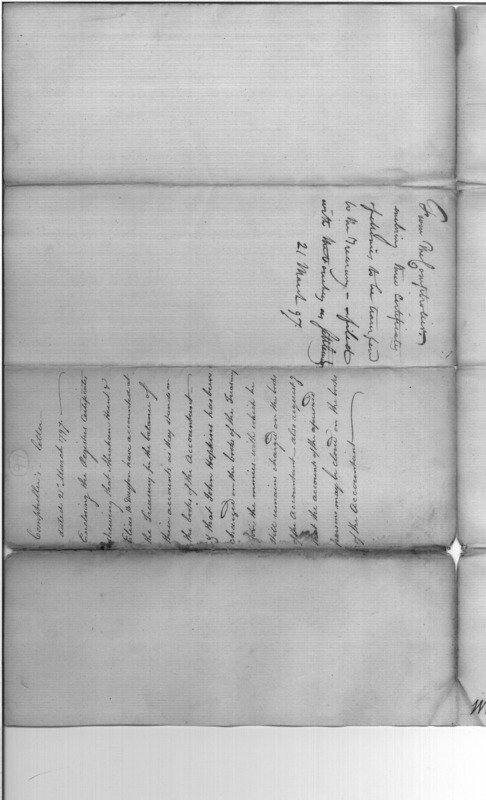 From the Comptroller
enclosing three Certificates
of                to be transfered
to the Treasury, & filed
with
21 March 97.
Comptroller's letter
dated 21st March 1797.
Enclosing the Register's Certificate
shewing that Abraham Hunt &
Elias B Dayton have accounted at
the Treasury for the balance of
their accounts as they stand on
the books of the Accountant
& that John Hopkins has been
charged on the books of the Treasury
for the monies with which he
still remains charged on the books
of the Accountant also request
that the accounts of the aforesaid
persons may be closed on the books
of the Accountant